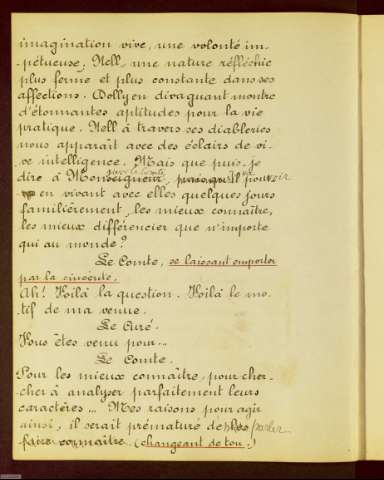 imagination vive, une volonté im-
pétueuse. Nell, une nature réfléchie
plus ferme et plus constante dans ses
affections. Dolly en divaguant montre
d'étonnantes aptitudes pour la vie
pratique. Nell à travers ses diableries
nous apparaît avec des éclairs de vi-
ve intelligence. Mais que puis-je
dire à Monseigneur, puisqu'il pouvoir
en vivant avec elles quelques jours
familièrement, les mieux connaître,
les mieux différencier que n'importe
qui au monde?
Le Comte, se laissant emporter
par la sincérité.
Ah! Voilà la question. Voilà le mo-
tif de ma venue.
Le Curé.
Vous êtes venu pour...
Le Comte.
Pour les mieux connaître, pour cher-
cher à analyser parfaitement leurs
caractères... Mes raisons pour agir
ainsi, il serait prématuré de parler
faire connaître. (changeant de ton:)